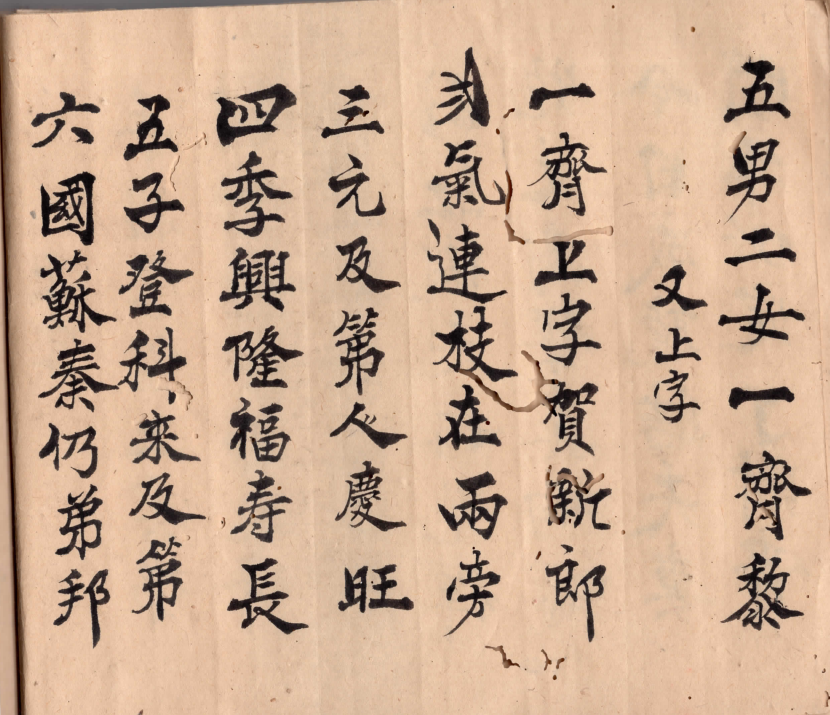 五男二女一齊黎
又上字
一齊上字賀新郎
弍氣連枝在兩旁
三元及第人慶旺
四季興隆福寿長
五子登科来及第
六國蘇秦仍弟邦